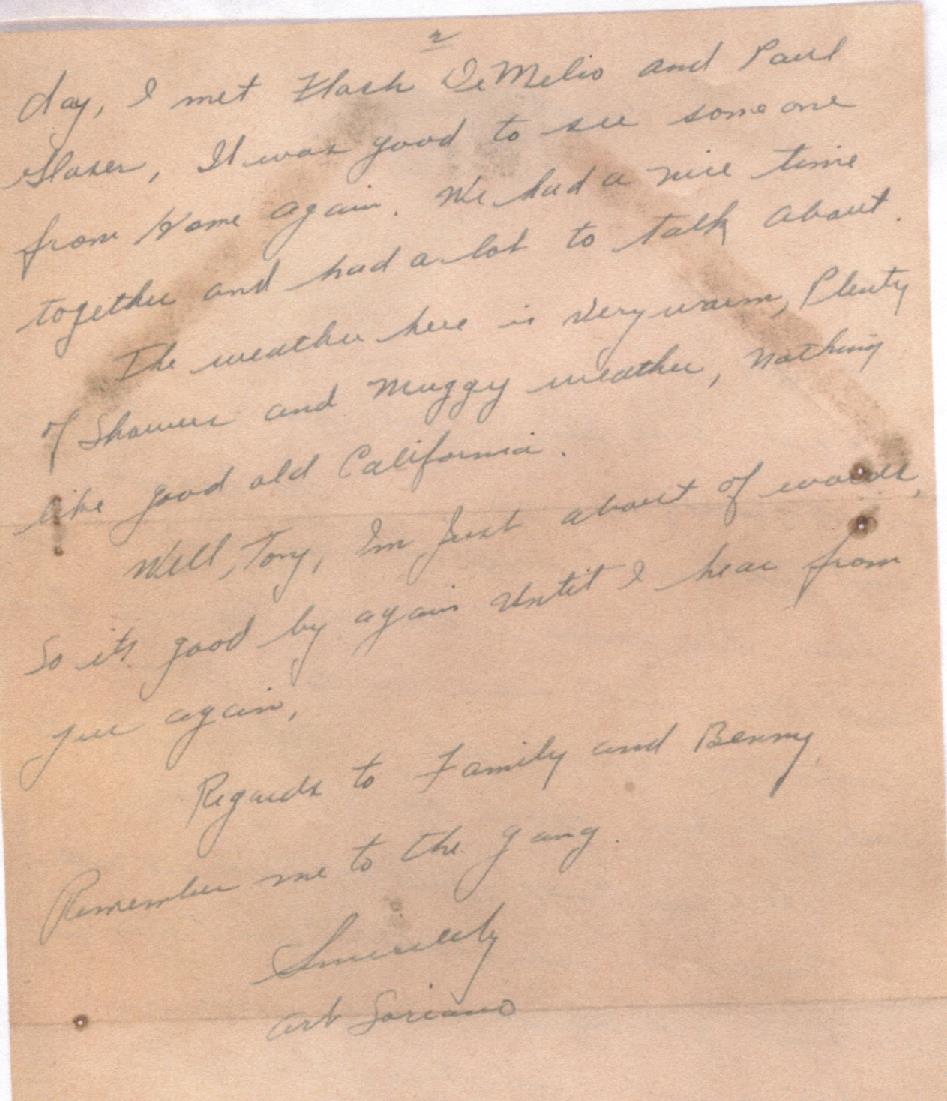 2
day, I met Flash DeMelio and Paul
Glaser, It was good to see someone
from Home again. We had a nice time
together and had a lot to talk about.
The weather here is very warm, Plenty
of Showers and Muggy weather, nothing
like good old California.
Well, Tony, Im Just about of words,
So its good by again Until I hear from
you again,
Regards to Family and Benny,
Remember me to the gang.
Sincerely
Art Soriano